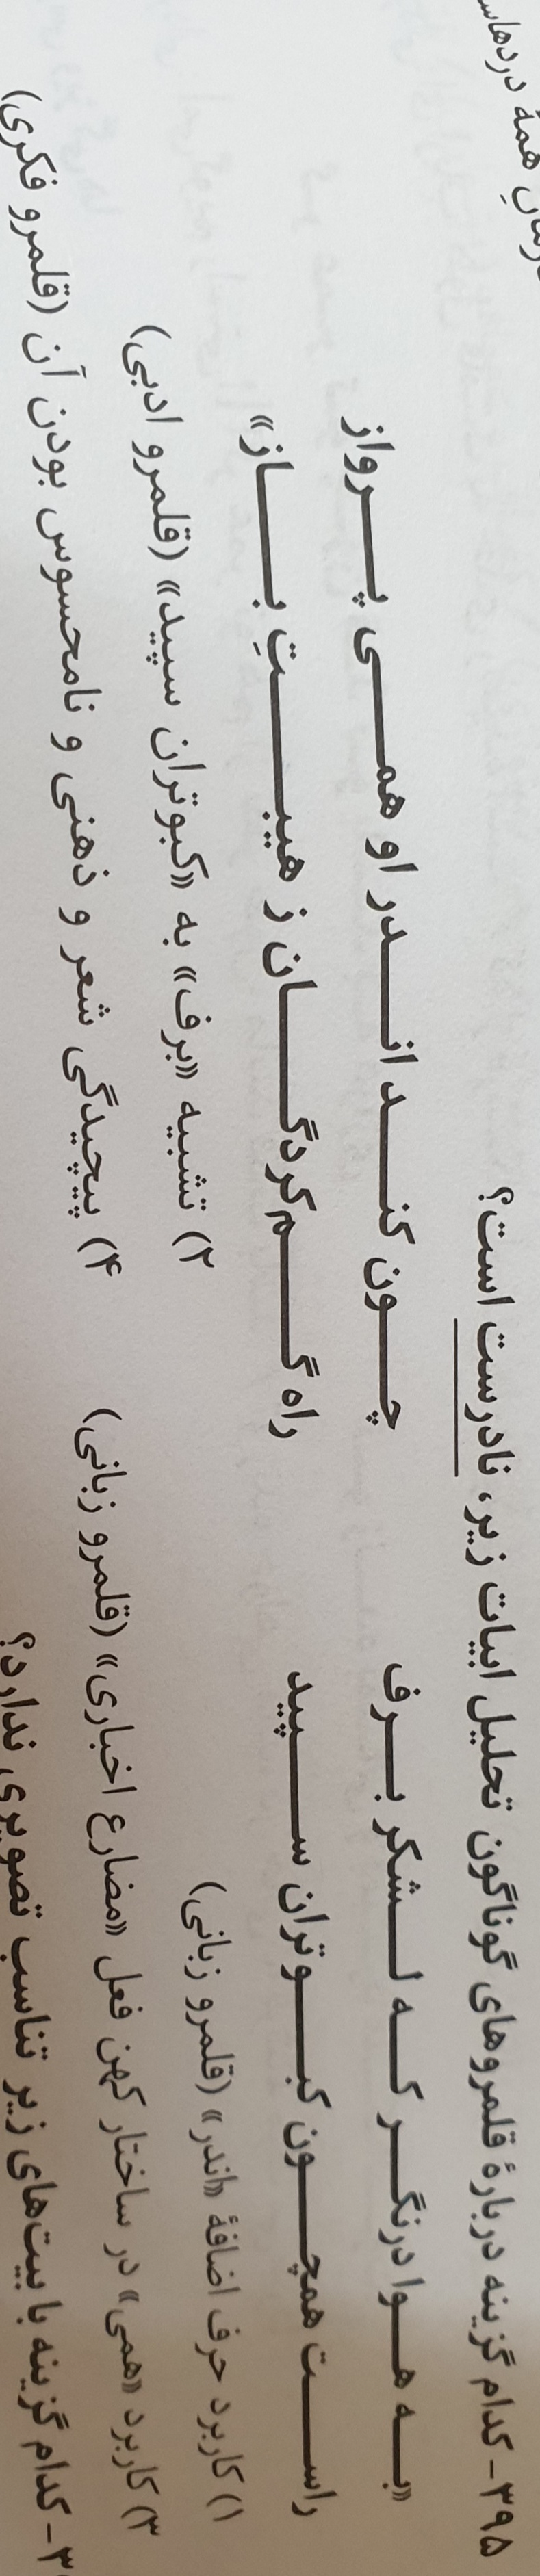 همهٔ دردهاست
۳۹۵- کدام گزینه دربارهٔ قلمروهای گوناگون تحلیل ابیات زیر، نادرست است؟
«به هوا درنگر که لشکر برف چون کند اندر او همی پرواز
راست همچون کبوتران سپید راه گم‌کردگان ز هیبتِ باز»
۱) کاربرد حرف اضافهٔ «اندر» (قلمرو زبانی) ۲) تشبیه «برف» به «کبوتران سپید» (قلمرو ادبی)
۳) کاربرد «همی» در ساختار کهن فعل «مضارع اخباری» (قلمرو زبانی) ۴) پیچیدگی شعر و ذهنی و نامحسوس بودن آن (قلمرو فکری)
- کدام گزینه با بیت‌های زیر تناسب تصویری ندارد؟